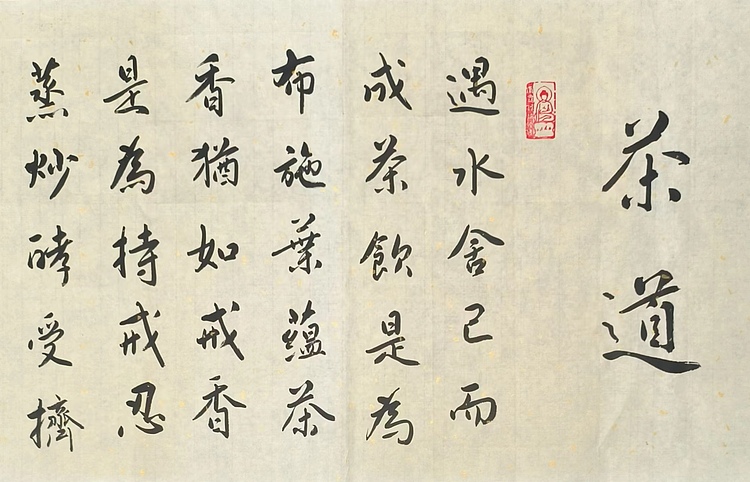 茶道
遇水舍己而
成茶飲是為
布施葉蘊茶
香猶如戒香
是為持戒忍
蒸炒酵受擠